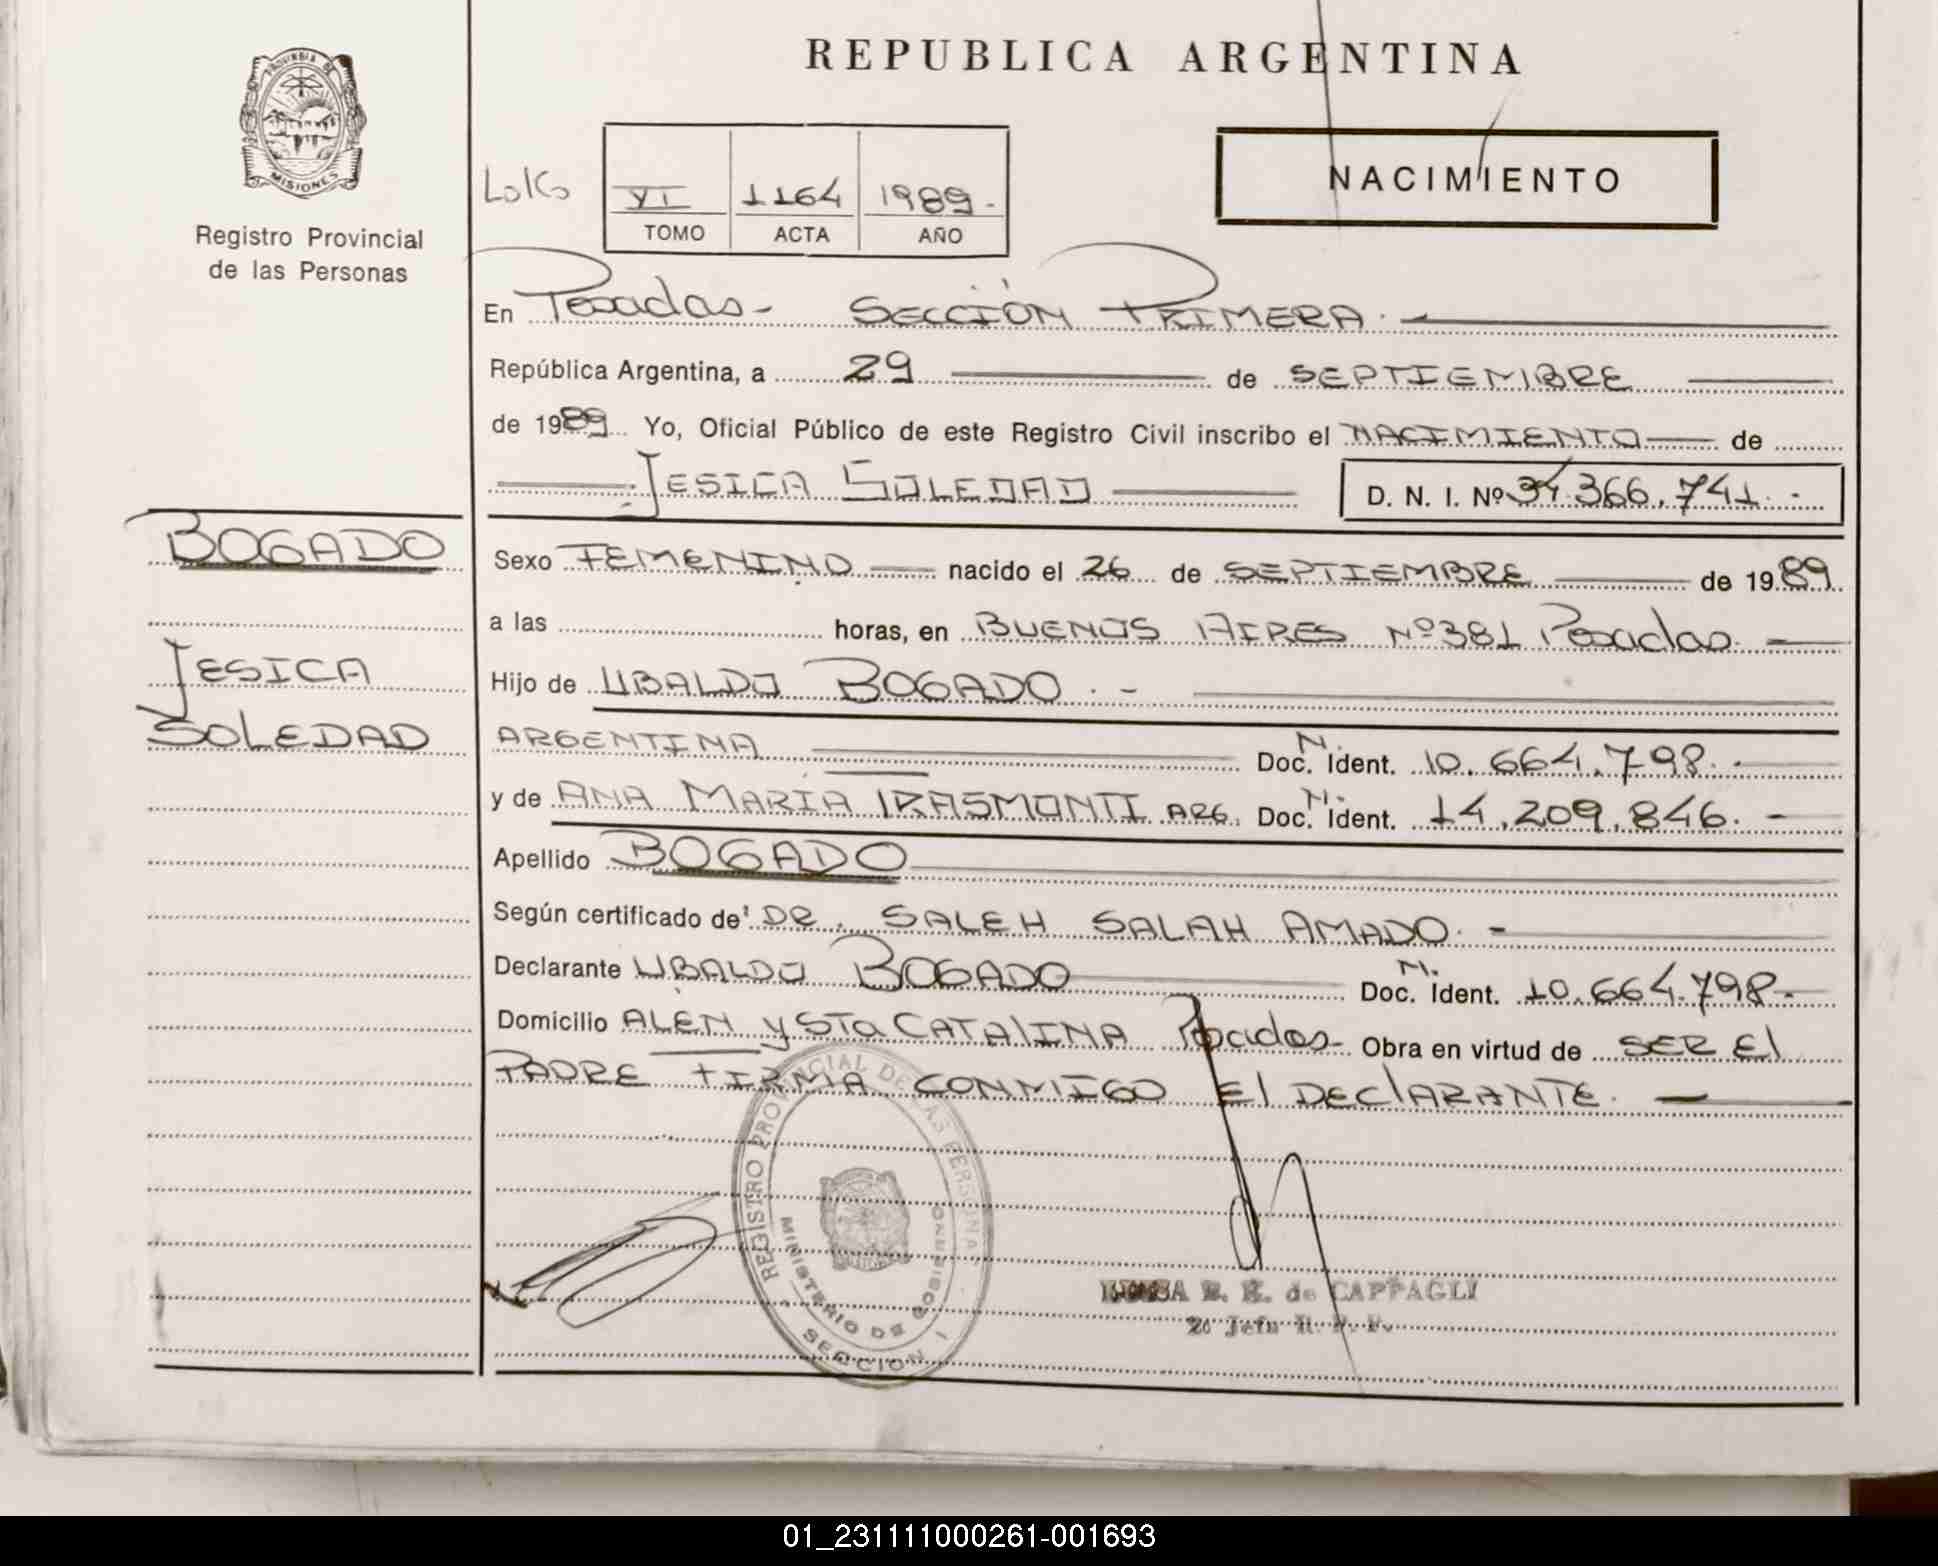 REPUBLICA ARGENTINA
PROVINCIA DE
MISIONES
Registro Provincial
de las Personas
VI 1164 1989.-
TOMO ACTA AÑO
NACIMIENTO
En Posadas- SECCIÓN PRIMERA.
República Argentina, a 29 de SEPTIEMBRE
de 1989 Yo, Oficial Público de este Registro Civil inscribo el NACIMIENTO de
JESICA SOLEDAD D. N. I. Nº 34.366.741.-
BOGADO
JESICA
SOLEDAD
Sexo FEMENINO nacido el 26 de SEPTIEMBRE de 1989
a las horas, en BUENOS AIRES Nº381 Posadas.
Hijo de UBALDO BOGADO.-
ARGENTINA Doc. N. Ident. 10.664.798.
y de ANA MARIA TRASMONTI ARG. Doc. N. Ident. 14.209.846.-
Apellido BOGADO
Según certificado de DR. SALEH SALAH AMADO.-
Declarante UBALDO BOGADO Doc. N. Ident. 10.664.798-
Domicilio ALEN y STa CATALINA Posadas- Obra en virtud de SER El
PADRE FIRMA CONMIGO El DEClARANTE.
REGISTRO PROVINCIAL DE LAS PERSONAS
MINISTERIO DE GOBIERNO
SECCION I
de CAPPAGLI
01_231111000261-001693